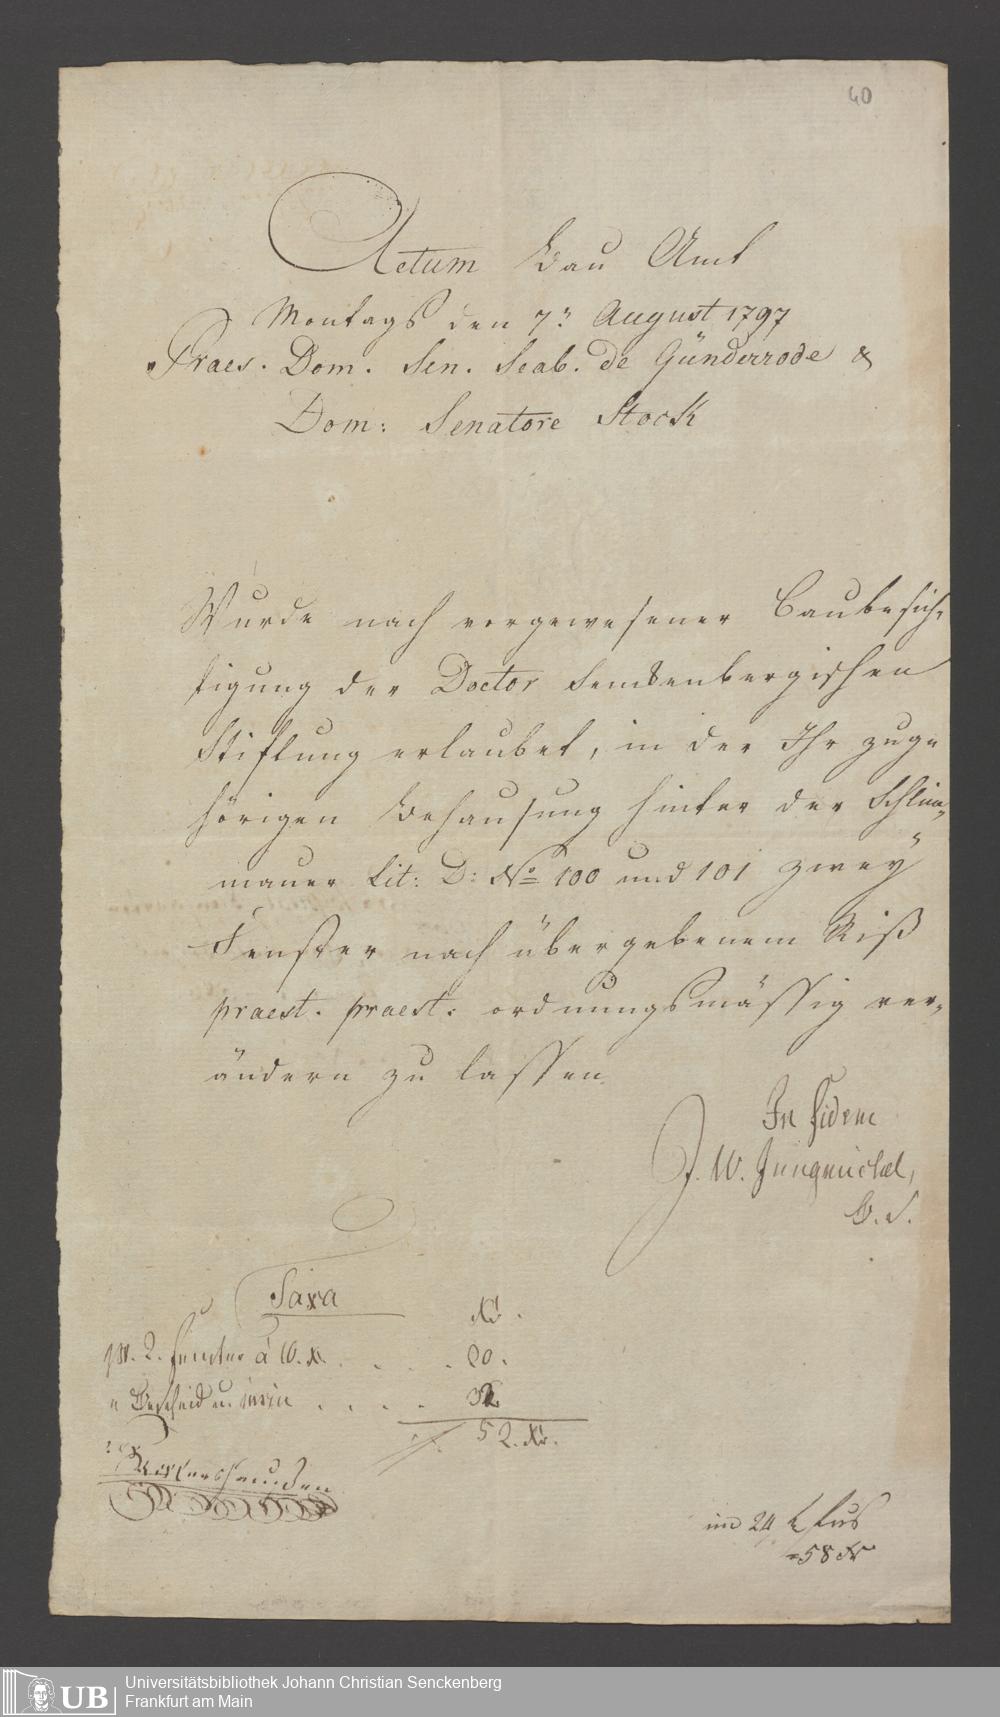 40
Actum Bau Amt
Montags den 7n August 1797
Praes. Dom. Sen. Scab. de Günderrode &
Dom: Senatore Stock
Wurde nach vorgewesener Baubesich-
tigung der Doctor Senckenbergischen
Stiftung erlaubet, in der Ihr zuge
hörigen Behausung hinter der Schlim-
mauer Lit: D: No 100 und 101 zwey
Fenster nach übergebenem Riß
praest. praest. ordnungsmässig ver-
ändern zu lassen
In fidem
J. W. Jungmichel,
B. S.
Taxa
Xr.
pr. 2. Fenster à 10. x. . . . 20.
" Bescheid u. . . . . 32
52. Xr.
im 24 f Fus
=58 Xr
UB
Universitätsbibliothek Johann Christian Senckenberg
Frankfurt am Main